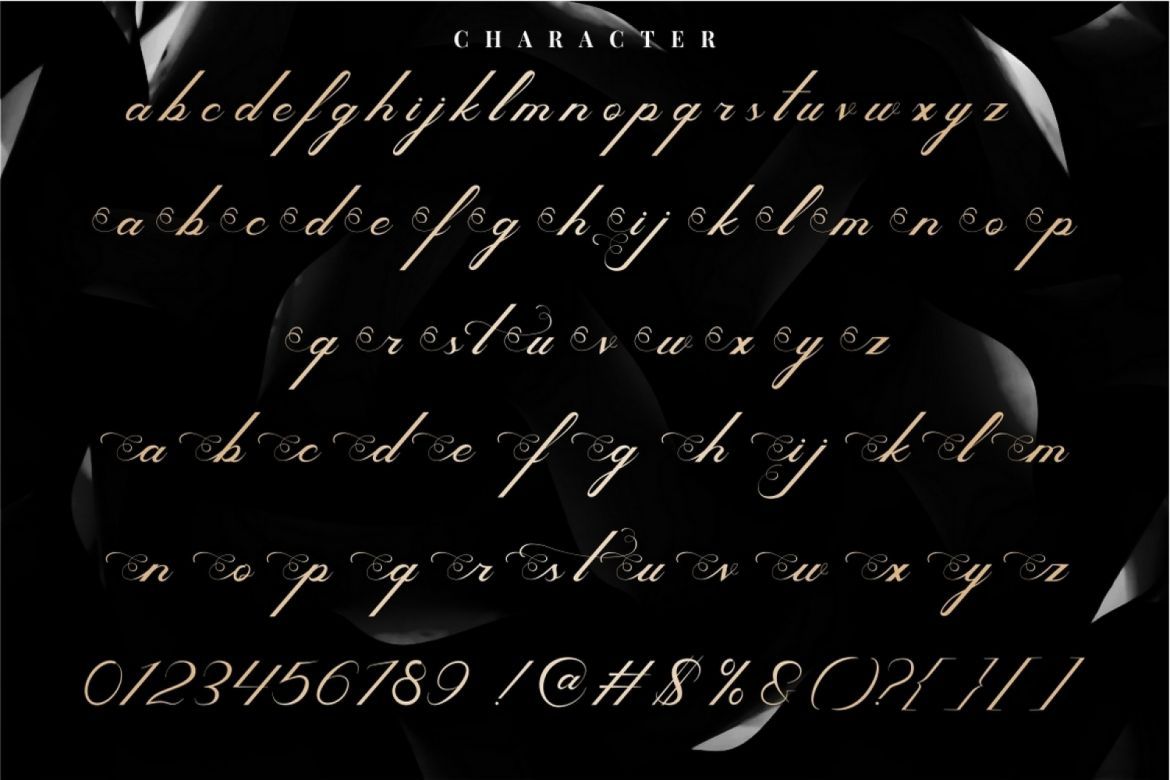 CHARACTER
abcdefghijklmnopqrstuvwxyz
a b c d e f g h i j k l m n o p
q r s t u v w x y z
a b c d e f g h i j k l m
n o p q r s t u v w x y z
0123456789 !@#$%&()?{}[]